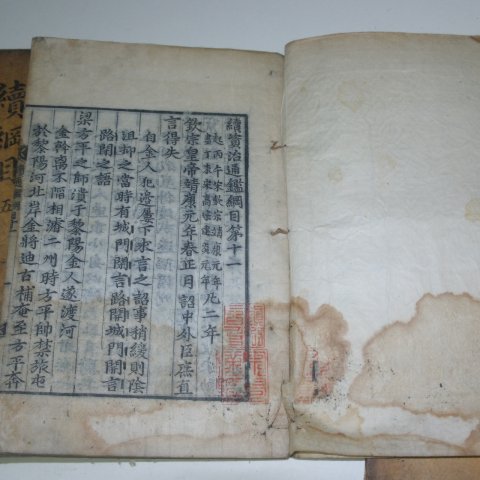 續資治通鑑綱目第十一
起丙午宋欽宗靖康元年
盡丁未宋高宗建炎元年凡二年
欽宗皇帝靖康元年春正月詔中外臣庶直
言得失
自金人犯邊屢下求言之詔事稍緩則陰
沮抑之當時有城門閉言路開城門開言
路閉之語
梁方平之師潰于黎陽金人遂渡河
金斡离不陷相濬二州時方平帥禁旅屯
於黎陽河北岸金將迪古補奄至方平奔
續綱目
五